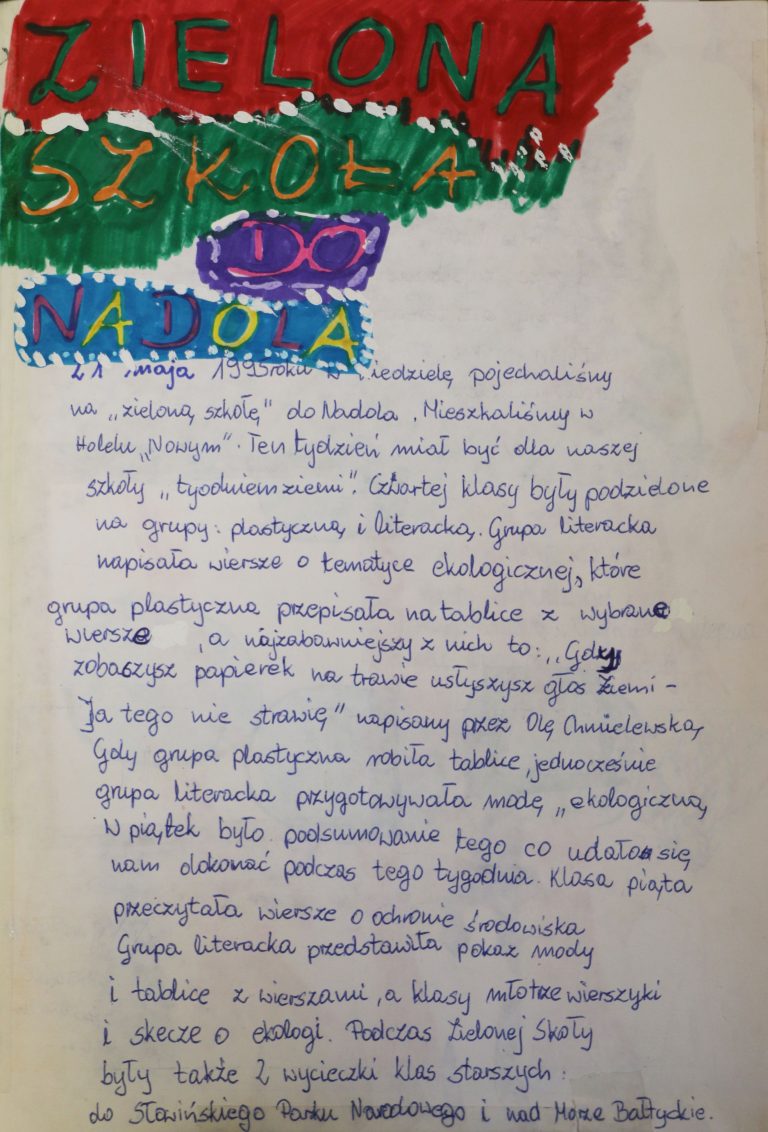 ZIELONA
SZKOŁA
DO
NADOLA
21 maja 1995 roku w niedzielę pojechaliśmy
na „zieloną szkołę" do Nadola. Mieszkaliśmy w
Hotelu „Nowym". Ten tydzień miał być dla naszej
szkoły „tyodniem ziemi". Czwartej klasy były podzielone
na grupy: plastyczną i literacką. Grupa literacka
napisała wiersze o tematyce ekologicznej, które
grupa plastyczna przepisała na tablice z wybrane
wiersze , a najzabawniejszy z nich to: „Gdy
zobaszysz papierek na trawie usłyszysz głos Ziemi –
Ja tego nie strawię" napisany przez Olę Chmielewską,
Gdy grupa plastyczna robiła tablice, jednocześnie
grupa literacka przygotowywała modę „ekologiczną,
W piątek było podsumowanie tego co udało się
nam dokonać podczas tego tygodnia. Klasa piąta
przeczytała wiersze o ochronie środowiska
Grupa literacka przedstawiła pokaz mody
i tablice z wierszami, a klasy młotsze wierszyki
i skecze o ekologi. Podczas Zielonej Skoły
były także 2 wycieczki klas starszych:
do Słowińskiego Parku Narodowego i nad Morze Bałtyckie.